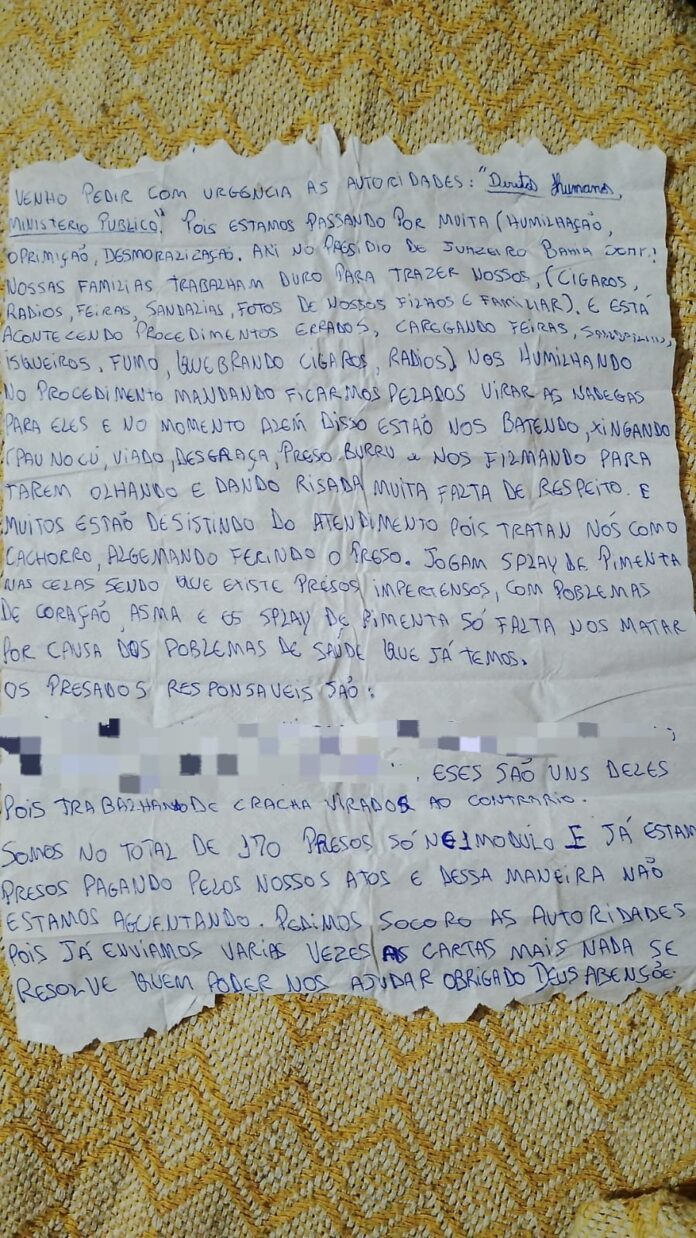 VENHO PEDIR COM URGENCIA AS AUTORIDADES: "Direitos Humanos,
MINISTERIO PUBLICO". POIS ESTAMOS PASSANDO POR MUITA (HUMILHAÇÃO,
OPRIMIÇÃO, DESMORALIZAÇÃO. NO PRESIDIO DE JUAZEIRO BAHIA
NOSSAS FAMILIAS TRABALHAM DURO PARA TRAZER NOSSOS, (CIGAROS,
RADIOS, FEIRAS, SANDALIAS, FOTOS DE NOSSOS FILHOS E FAMILIAR). E ESTÁ
ACONTECENDO PROCEDIMENTOS ERRADOS, CAREGANDO FEIRAS,
ISQUEIROS, FUMO, (QUEBRANDO CIGAROS, RADIOS) NOS HUMILHANDO
NO PROCEDIMENTO MANDANDO FICARMOS PELADOS VIRAR AS NADEGAS
PARA ELES E NO MOMENTO ALÉM DISSO ESTÃO NOS BATENDO, XINGANDO
(PAU NO CÚ, VIADO, DESGRAÇA, PRESO BURRU e NOS FILMANDO PARA
TAREM OLHANDO E DANDO RISADA MUITA FALTA DE RESPEITO. E
MUITOS ESTÃO DESISTINDO DO ATENDIMENTO POIS TRATAN NÓS COMO
CACHORRO, ALGEMANDO FERINDO O PRESO. JOGAM SPLAY DE PIMENTA
NAS CELAS SENDO QUE EXISTE PRESOS IMPERTENSOS, COM POBLEMAS
DE CORAÇÃO, ASMA E OS SPLAY DE PIMENTA SÓ FALTA NOS MATAR
POR CAUSA DOS POBLEMAS DE SAÚDE QUE JÁ TEMOS.
OS PRESADOS RESPONSAVEIS SÃO:
. ESES SÃO UNS DELES
POIS TRABALHANDO DE CRACHA VIRADOS AO CONTRARIO.
SOMOS NO TOTAL DE 170 PRESOS SÓ NE1MODULO E JÁ ESTAM
PRESOS PAGANDO PELOS NOSSOS ATOS E DESSA MANEIRA NÃO
ESTAMOS AGUENTANDO. PEDIMOS SOCORO AS AUTORIDADES
POIS JÁ ENVIAMOS VARIAS VEZES AS CARTAS MAIS NADA SE
RESOLVE QUEM PODER NOS AJUDAR OBRIGADO DEUS ABENSÕE.